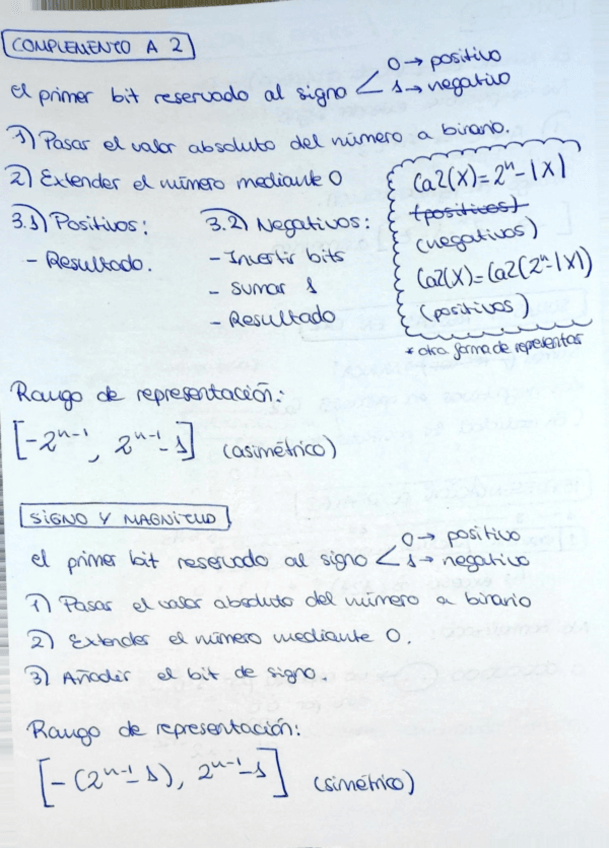 COMPLEMENTO A 2
El primer bit reservado al signo < 0 → positivo
1 → negativo
1) Pasar el valor absoluto del número a binario.
2) Extender el número mediante 0
3.1) Positivos:
- Resultado.
3.2) Negativos:
- Invertir bits
- Sumar 1
- Resultado
Ca2(X) = 2ⁿ - |X|
(positivos)
(negativos)
Ca2(X) = Ca2(2ⁿ - |X|)
(positivos)
* otra forma de representar
Rango de representación:
[-2ⁿ⁻¹, 2ⁿ⁻¹-1] (asimétrico)
SIGNO Y MAGNITUD
El primer bit reservado al signo < 0 → positivo
1 → negativo
1) Pasar el valor absoluto del número a binario
2) Extender el número mediante 0.
3) Añadir el bit de signo.
Rango de representación:
[-(2ⁿ⁻¹-1), 2ⁿ⁻¹-1] (simétrico)